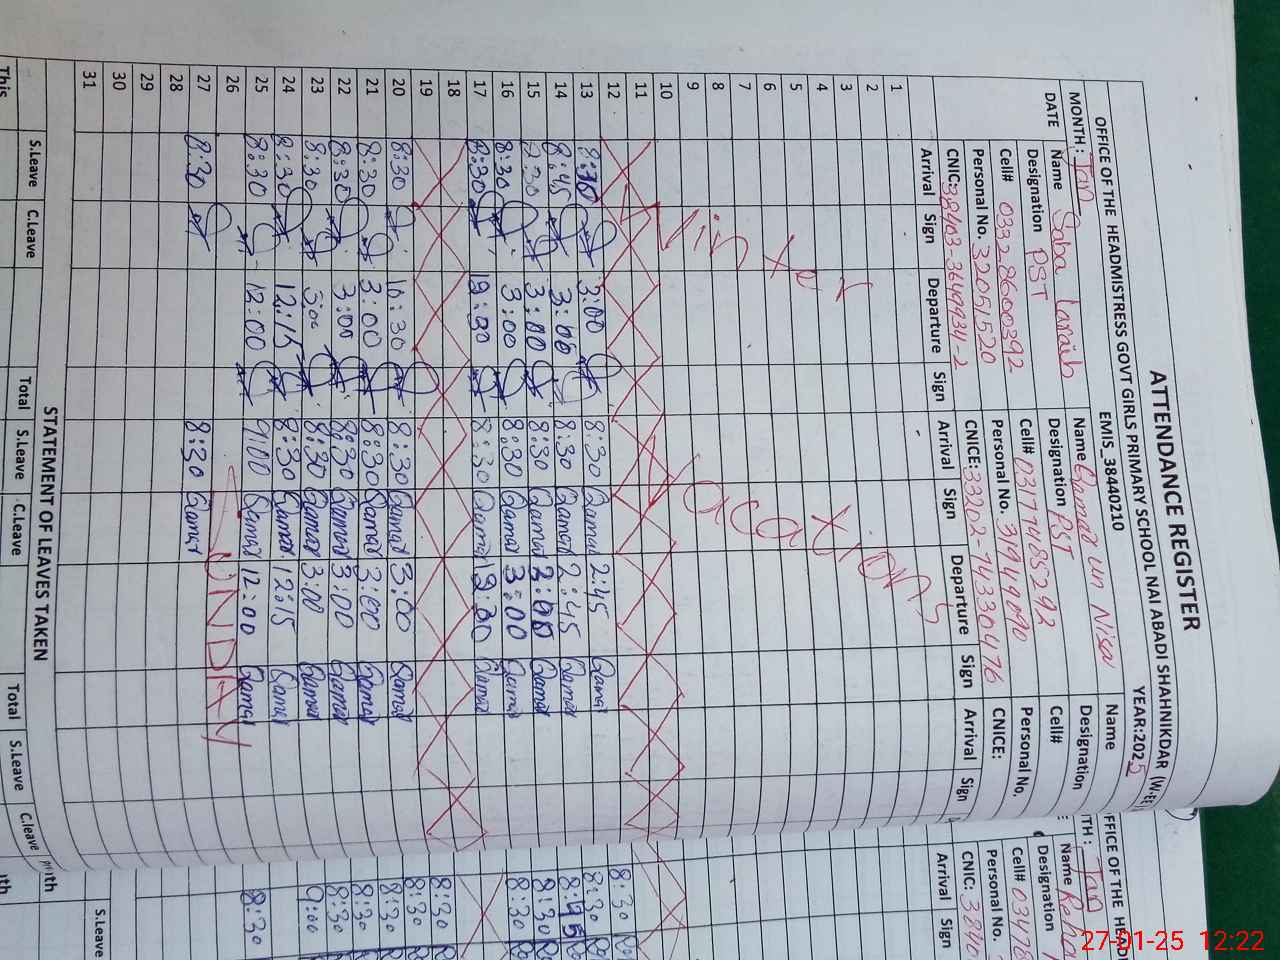 ATTENDANCE REGISTER
OFFICE OF THE HEADMISTRESS GOVT GIRLS PRIMARY SCHOOL NAI ABADI SHAHNIKDAR (W.EE
EMIS_38440210 YEAR:2025
MONTH: Jan
DATE
Name Saba Name Qamar un Nisa Name
Designation PST Designation PST Designation
Cell# 0332 8600392 Cell# 03177485292 Cell#
Personal No. 32051520 Personal No. 31949090 Personal No.
CNIC: 38403-3649934-2 CNICE: 33202-7433304476 CNICE:
Arrival Sign Departure Sign Arrival Sign Departure Sign Arrival Sign
1
2
3
4
5
6
7
8
9
10
Winter Vacations
11
12
13 8:30 3:00 8:30 Qamar 2:45 Qamar
14 8:45 3:00 8:30 Qamar 2:45 Qamar
15 8:30 3:00 8:30 Qamar 3:00 Qamar
16 8:30 3:00 8:30 Qamar 3:00 Qamar
17 8:30 8:30 Qamar Qamar
18
19
20 8:30 8:30 Qamar 3:00 Qamar
21 8:30 3:00 8:30 Qamar 3:00 Qamar
22 8:30 3:00 8:30 Qamar 3:00 Qamar
23 8:30 3:00 8:30 Qamar 3:00 Qamar
24 8:30 12:15 8:30 Qamar 12:15 Qamar
25 8:30 12:00 9:00 Qamar 12:00 Qamar
26 SUNDAY
27 8:30 8:30 Qamar
28
29
30
31
STATEMENT OF LEAVES TAKEN
S.Leave C.Leave Total S.Leave C.Leave Total S.Leave C.leave
This
OFFICE OF THE HEAD
TH: Jan
Name
Designation
Cell#
Personal No.
CNIC: 3840
Arrival Sign
8:30
8:30
8:45
8:30
8:30
8:30
8:30
8:30
8:30
8:30
9:00
8:30
S.Leave
27-01-25 12:22